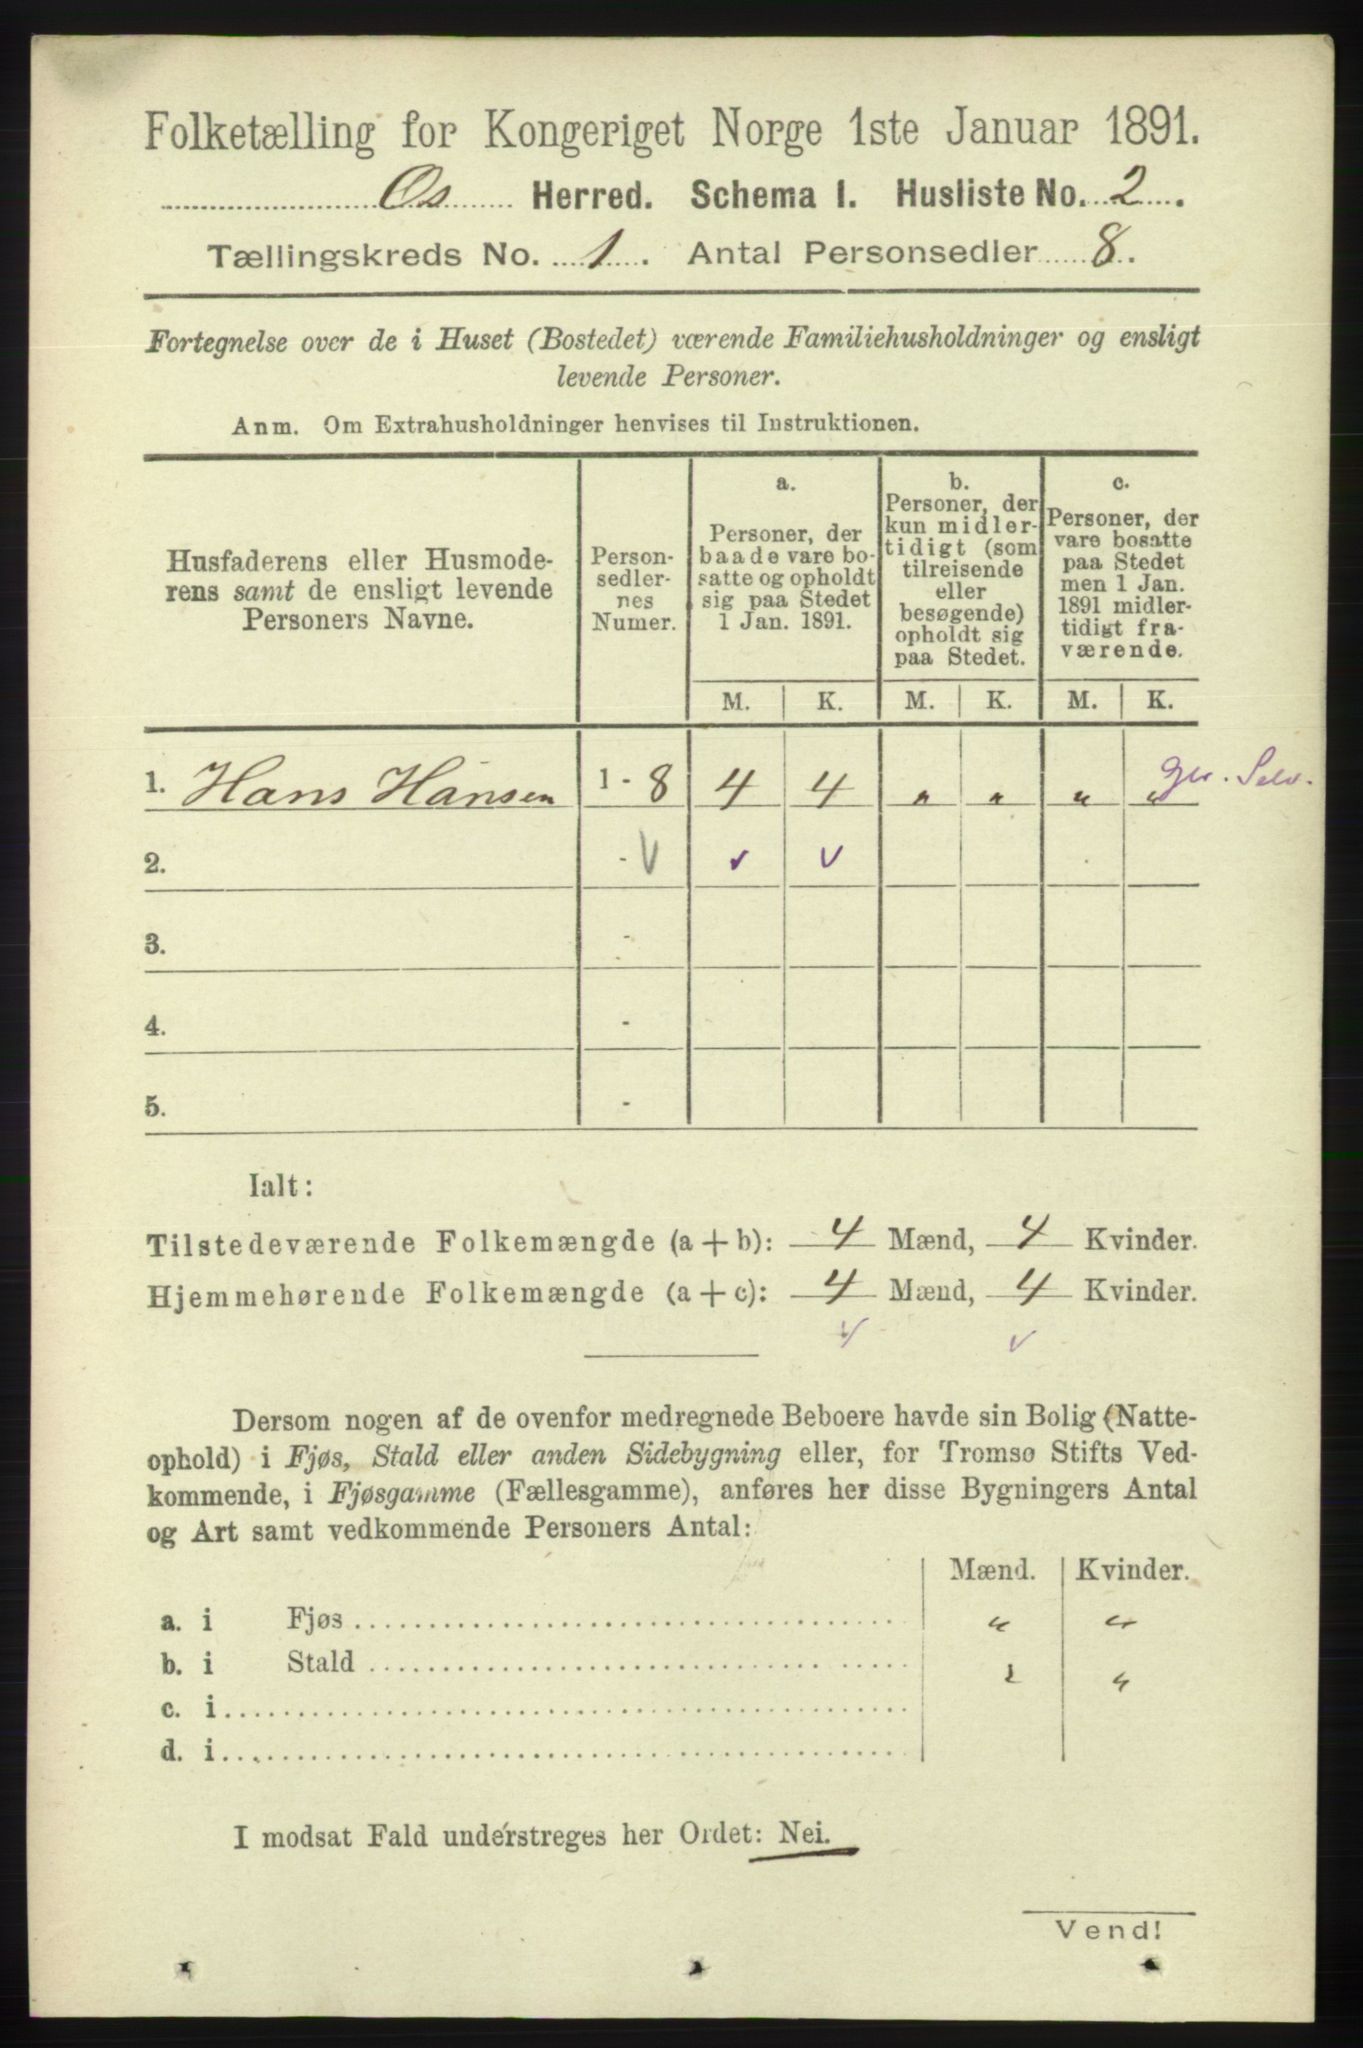 Folketælling for Kongeriget Norge 1ste Januar 1891.
Os Herred. Schema I. Husliste No. 2.
Tællingskreds No. 1. Antal Personsedler 8.
Fortegnelse over de i Huset (Bostedet) værende Familiehusholdninger og ensligt
levende Personer.
Anm. Om Extrahusholdninger henvises til Instruktionen.
Husfaderens eller Husmode-
rens samt de ensligt levende
Personers Navne.
Person-
sedler-
nes
Numer.
a.
Personer, der
baade vare bo-
satte og opholdt
sig paa Stedet
1 Jan. 1891.
b.
Personer, der
kun midler-
tidigt (som
tilreisende
eller
besøgende)
opholdt sig
paa Stedet.
c.
Personer, der
vare bosatte
paa Stedet
men 1 Jan.
1891 midler-
tidigt fra-
værende.
M. K. M. K. M. K.
1. Hans Hansen 1 - 8 4 4 " " " "
2. -
3. -
4. -
5. -
Ialt:
Tilstedeværende Folkemængde (a + b): 4 Mænd, 4 Kvinder.
Hjemmehørende Folkemængde (a + c): 4 Mænd, 4 Kvinder.
Dersom nogen af de ovenfor medregnede Beboere havde sin Bolig (Natte-
ophold) i Fjøs, Stald eller anden Sidebygning eller, for Tromsø Stifts Ved-
kommende, i Fjøsgamme (Fællesgamme), anføres her disse Bygningers Antal
og Art samt vedkommende Personers Antal:
Mænd. Kvinder.
a. i Fjøs " "
b. i Stald " "
c. i
d. i
I modsat Fald understreges her Ordet: Nei.
Vend!